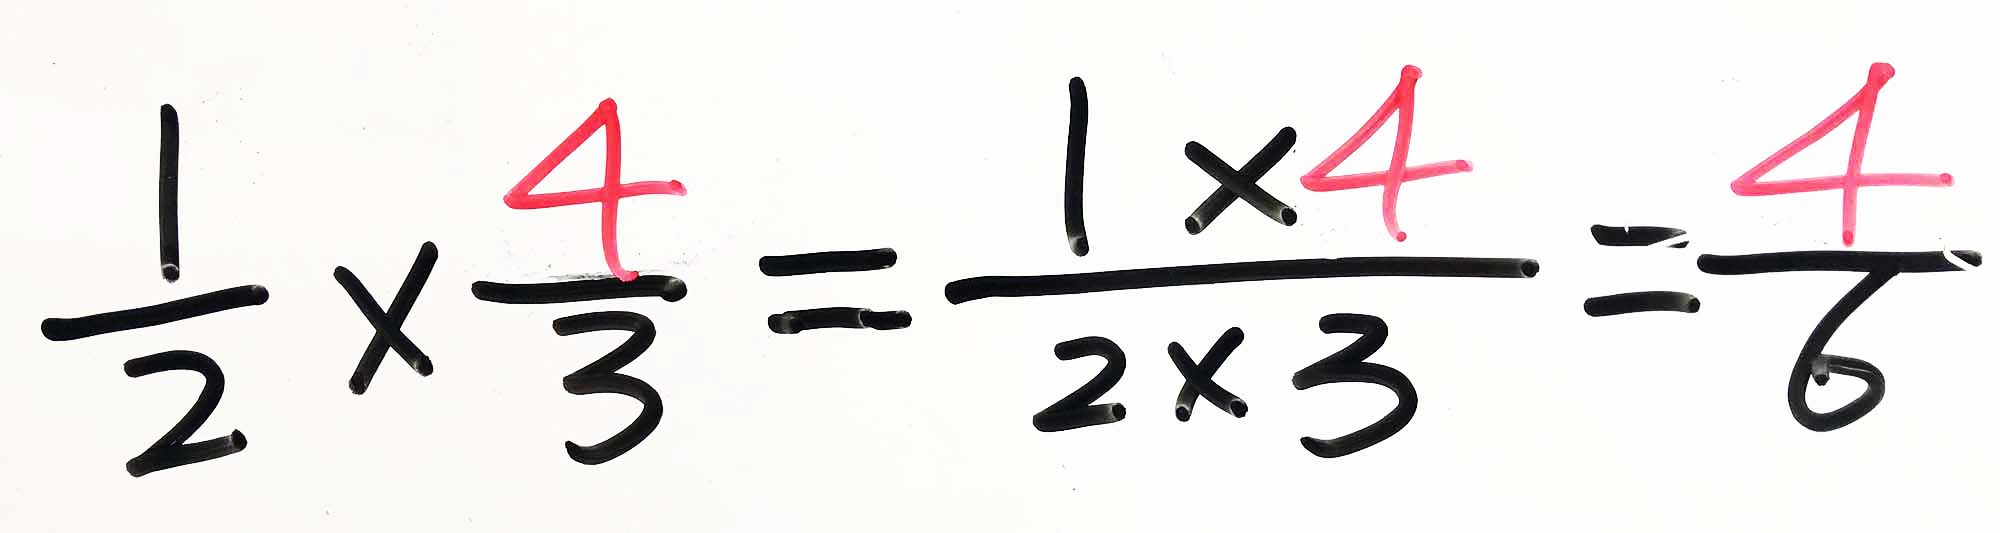 1/2 × 4/3 = (1 × 4)/(2 × 3) = 4/6